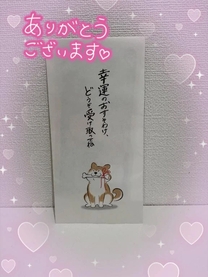 ありがとう
ございます
幸運のおすそわけ、
どうぞ受け取ってね